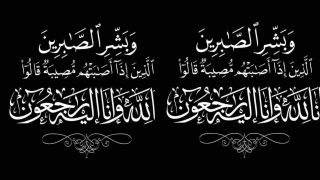 وَبَشِّرِ ٱلصَّٰبِرِينَ
ٱلَّذِينَ إِذَآ أَصَٰبَتۡهُم مُّصِيبَةٞ قَالُوٓاْ
إِنَّا لِلَّهِ وَإِنَّآ إِلَيۡهِ رَٰجِعُونَ
وَبَشِّرِ ٱلصَّٰبِرِينَ
ٱلَّذِينَ إِذَآ أَصَٰبَتۡهُم مُّصِيبَةٞ قَالُوٓاْ
إِنَّا لِلَّهِ وَإِنَّآ إِلَيۡهِ رَٰجِعُونَ